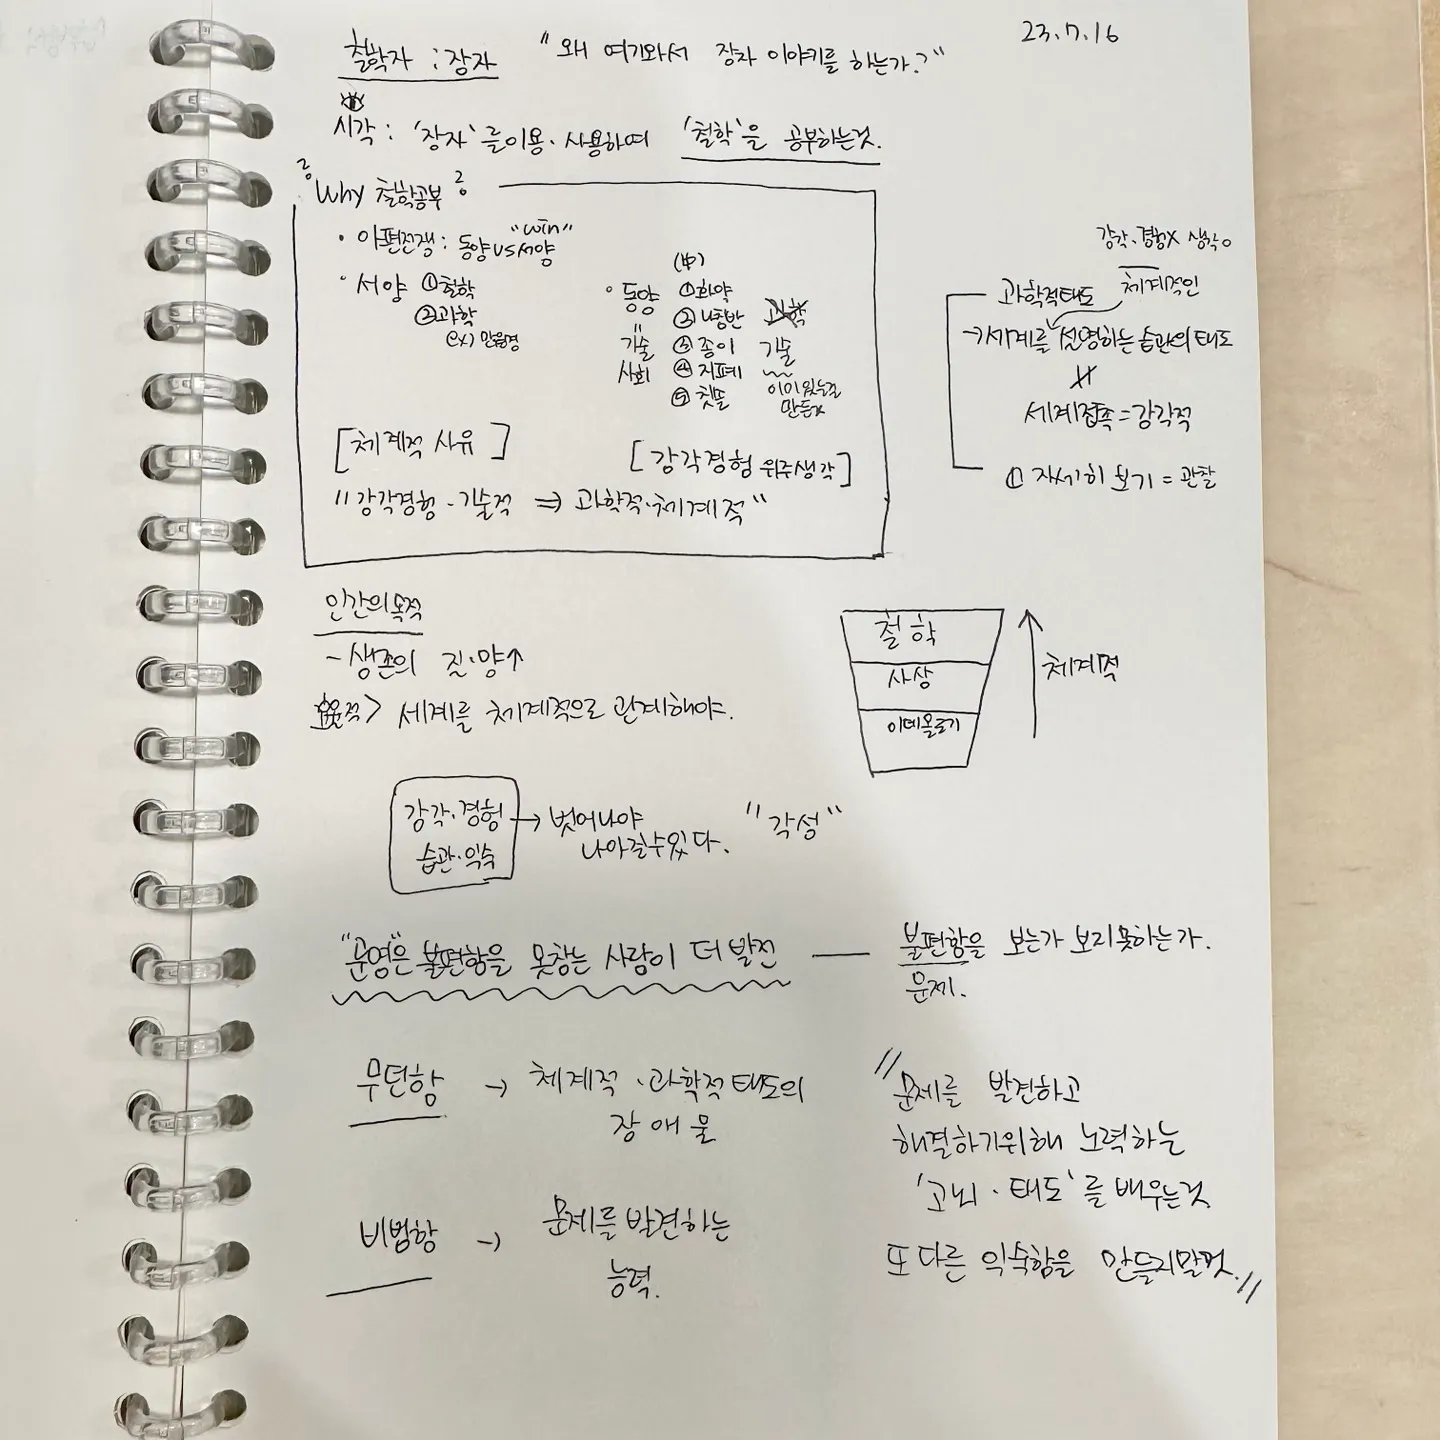 23.7.16
철학자 : 장자 "왜 여기와서 장자 이야기를 하는가?"
시각 : '장자'를 이용·사용하여 '철학'을 공부하는것.
Why 철학공부
· 아편전쟁 : 동양 VS 서양 "win"
· 서양 ① 철학
② 과학
(ex) 만유인력
· 동양 (中)
① 화약
② 나침반 과학
기술 ③ 종이 기술
사회 ④ 지폐 이미 있는걸
⑤ 젓뜰 만든것
[체계적 사유] [감각경험 위주생각]
"감각경험·기술적 ⇒ 과학적·체계적"
감각·경험X 생각o
과학적태도 체계적인
→ 세계를 설명하는 습관의 태도
세계접촉 = 감각적
① 자세히 보기 = 관찰
인간의 목적
- 생존의 질·양↑
> 세계를 체계적으로 관계해야.
철학
사상
이데올로기
체계적
감각·경험 → 벗어나야
습관·익숙 나아갈수있다. "각성"
"문명"은 불편함을 못참는 사람이 더 발전 — 불편함을 보는가 보지못하는가.
문제.
무던함 → 체계적·과학적 태도의
장애물
비범함 → 문제를 발견하는
능력.
"문제를 발견하고
해결하기위해 노력하는
'고뇌·태도'를 배우는것
또 다른 익숙함을 만들지말것."